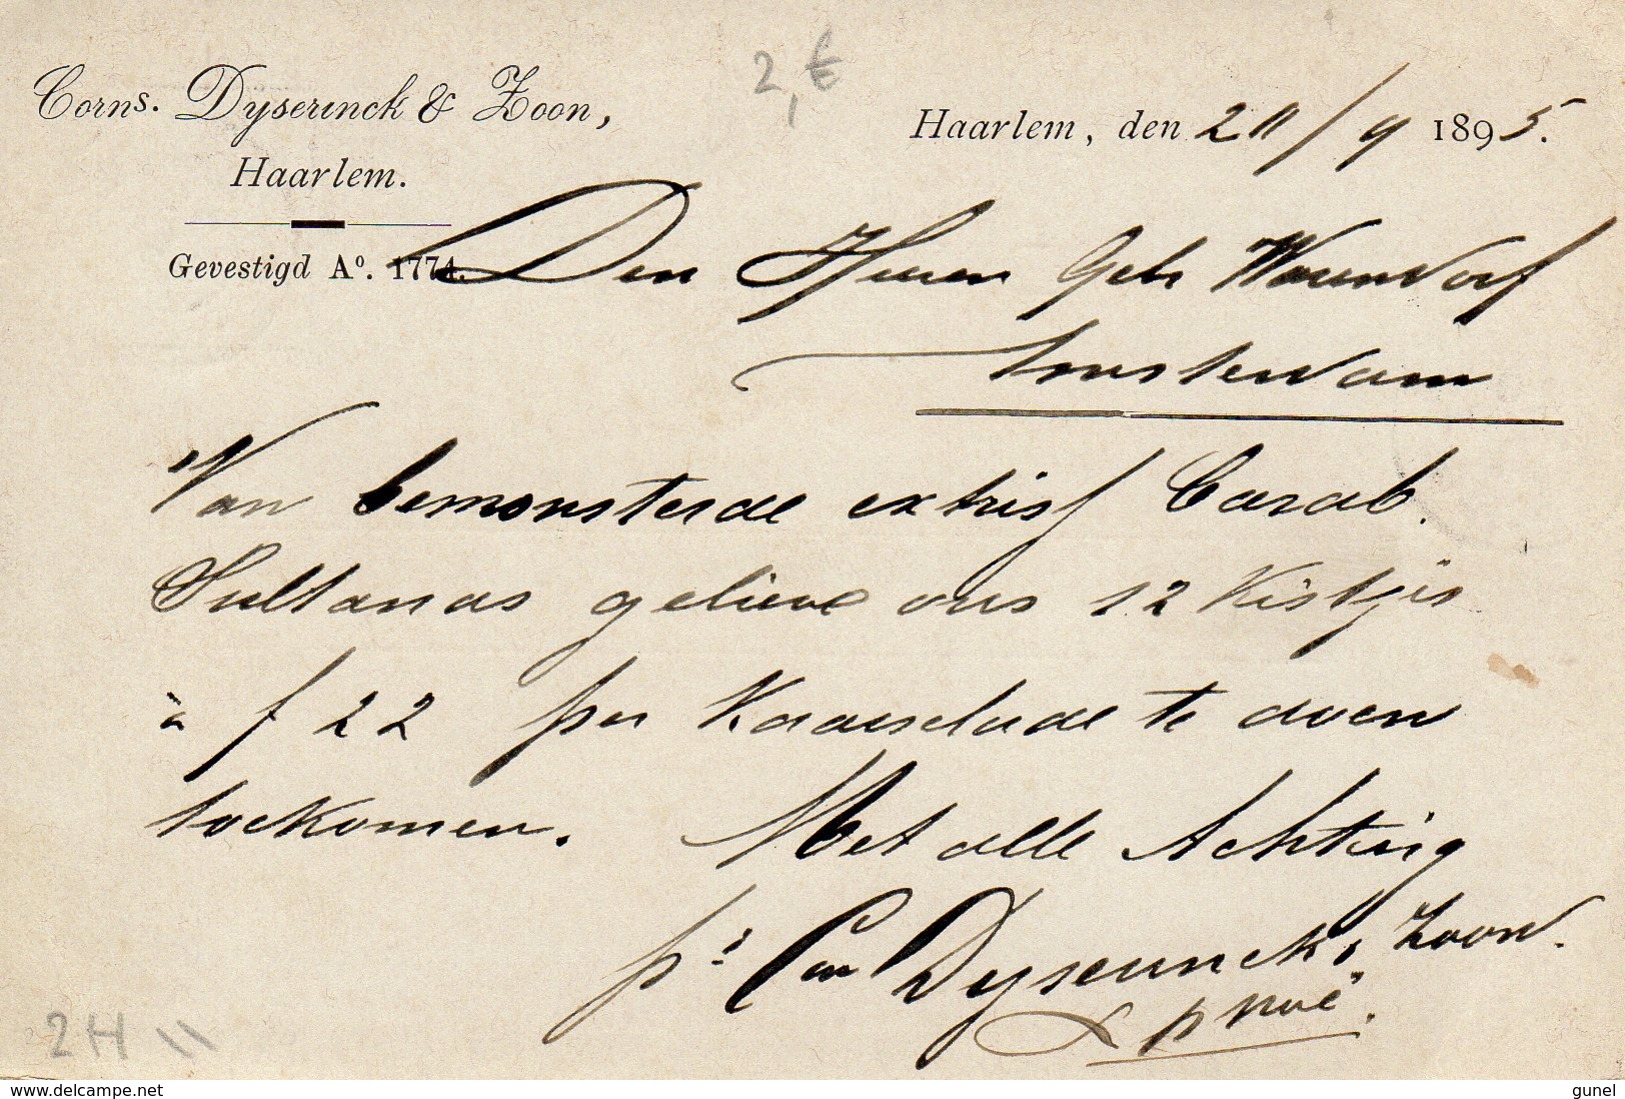 Corns. Dyserinck & Zoon,
Haarlem.
Gevestigd Aº. 1774.
2,€
Haarlem, den 20/9 1895.
Den Heeren Gebr
Amsterdam
Van bemonsterde extrissf Carab.
Sultanas gelieve ons 12 Kistjes
à f 22 per Kaasschade te doen
toekomen. Met alle Achting
pr Corn Dyserinck & Zoon.
2H \\
delcampe.net
gunel